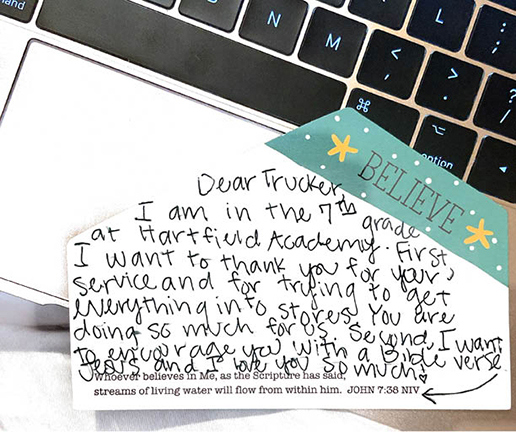 and
B
N
M
L
<
,
>
.
:
;
?
/
⌘
⌥
option
BELIEVE
Dear Trucker,
I am in the 7th grade
at Hartfield Academy. First
I want to thank you for your
service and for trying to get
everything into stores. You are
doing so much for us. Second, I want
to encourage you with a Bible verse.
Jesus and I love you so much!
Whoever believes in Me, as the Scripture has said,
streams of living water will flow from within him. JOHN 7:38 NIV